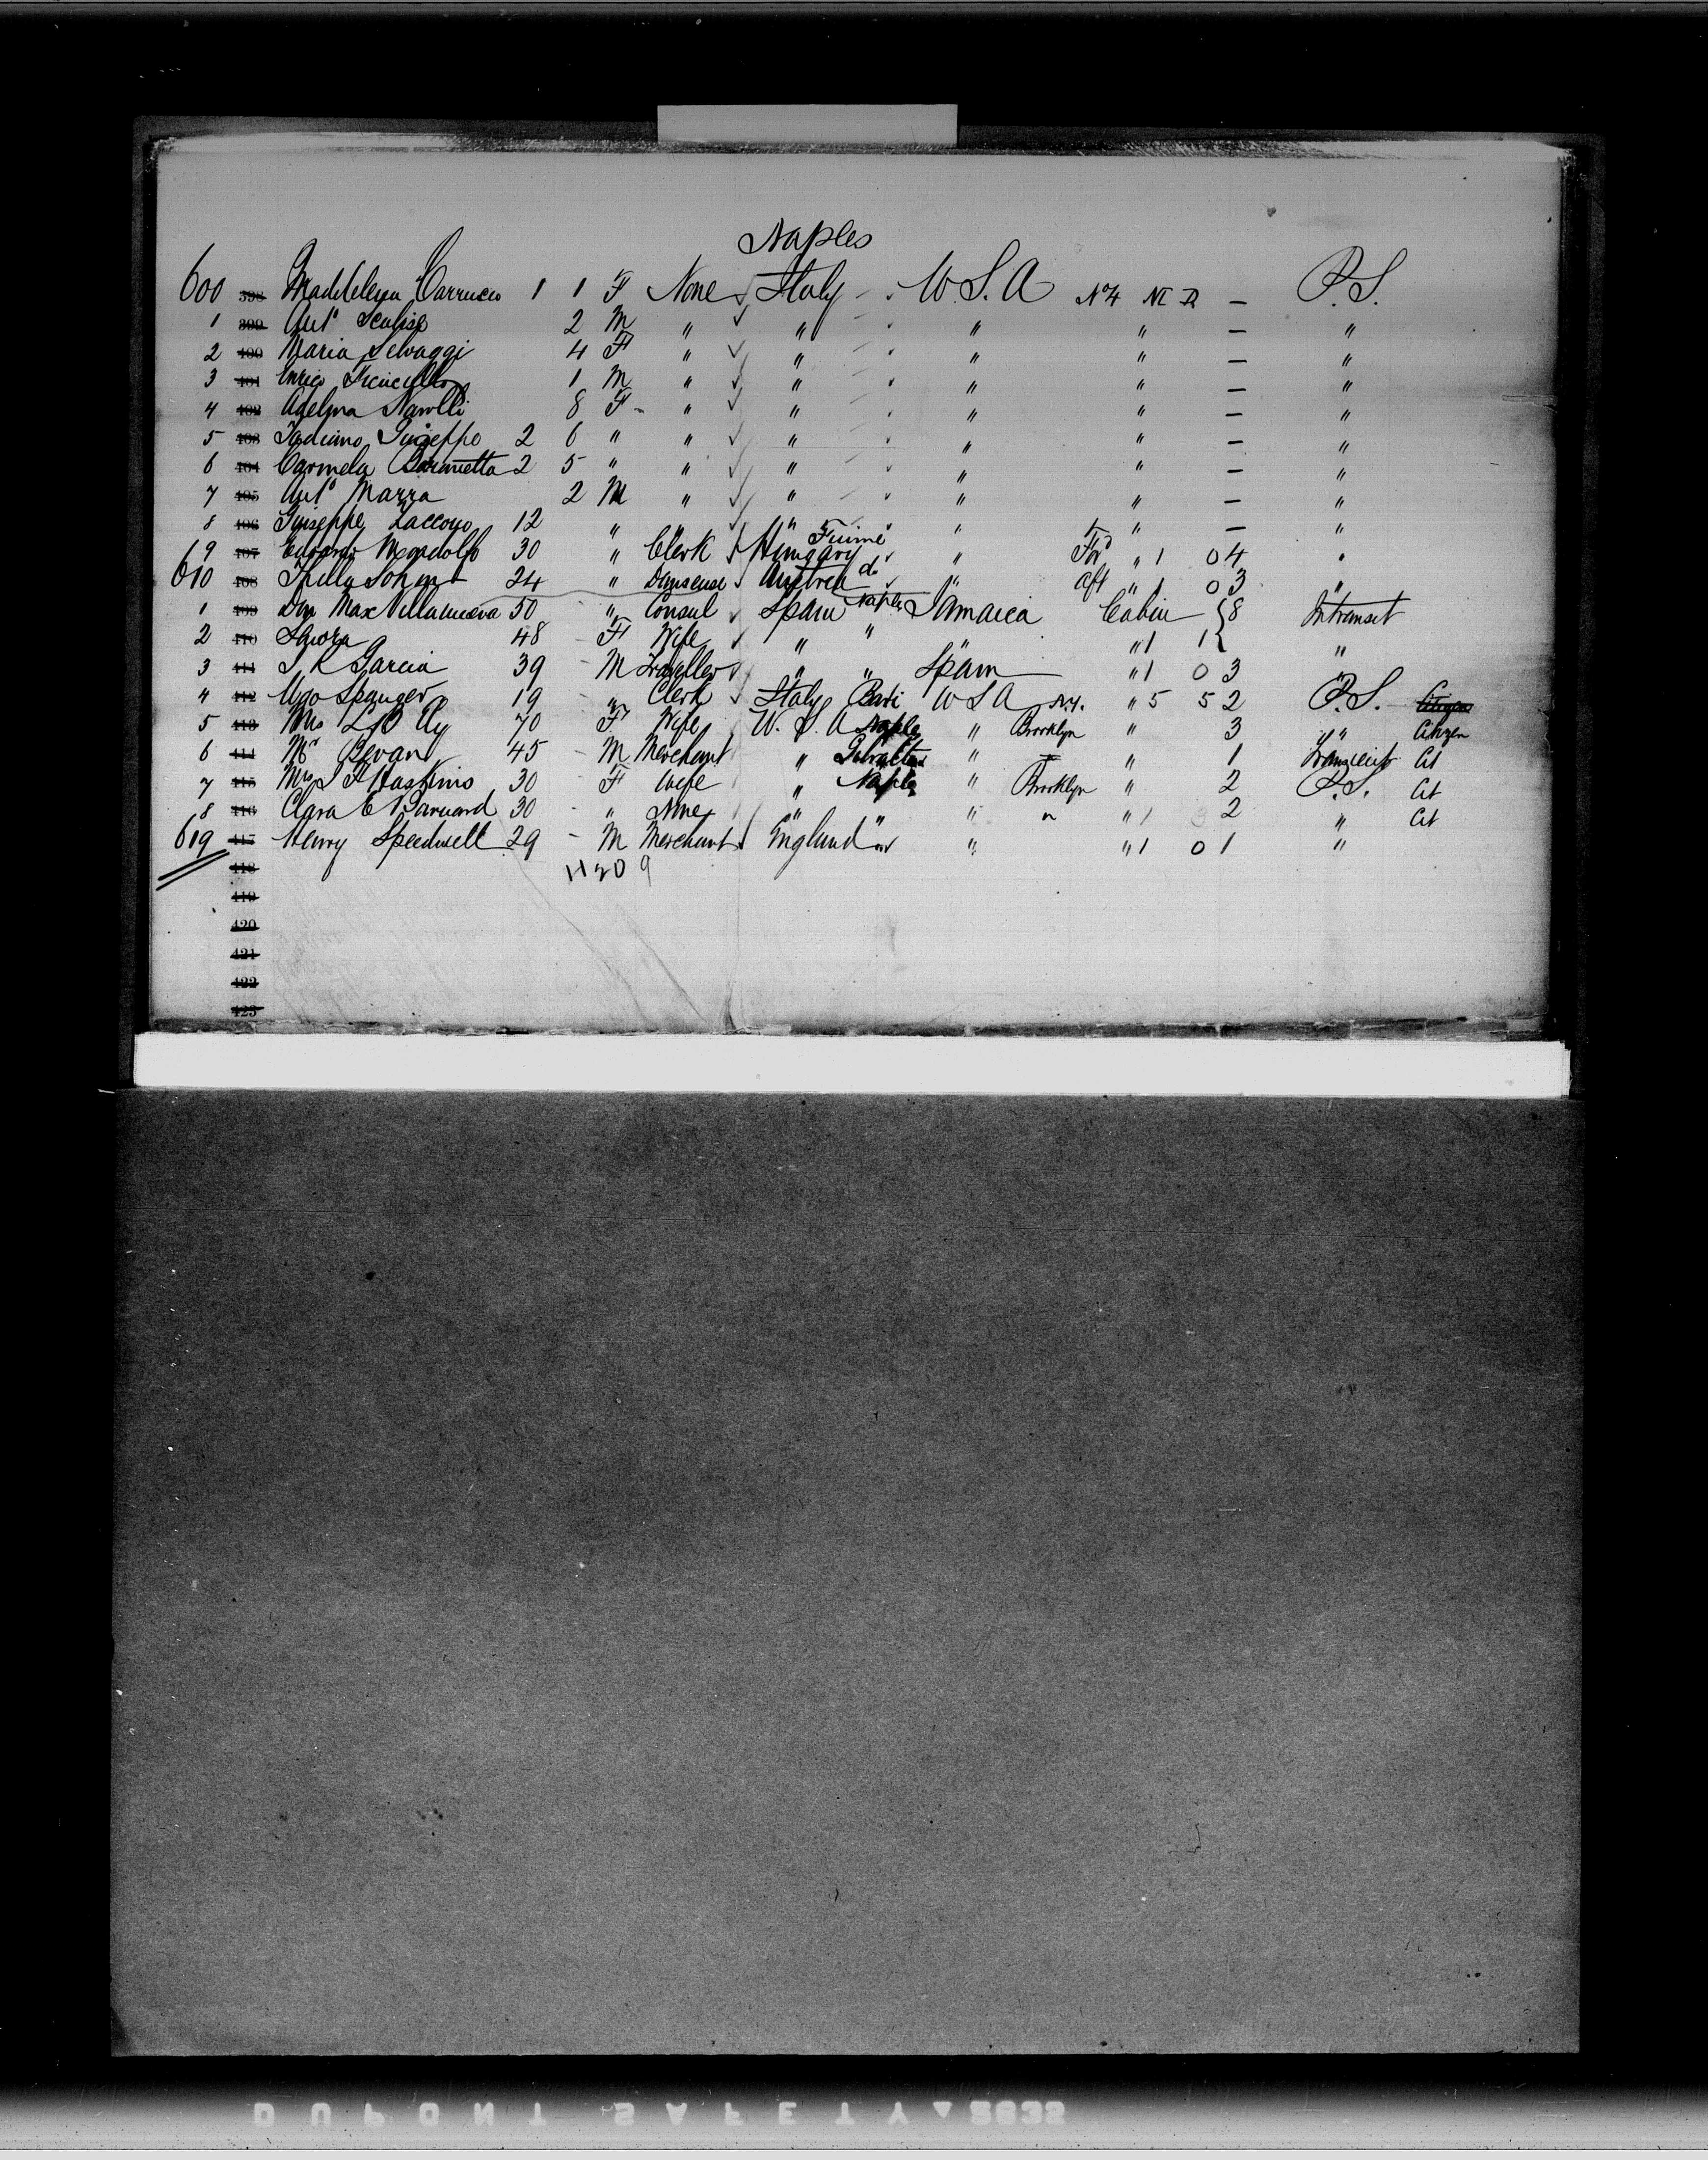 Naples
600 398 Maddelena Carruccio 1 1 F None Italy U.S.A No 4 N D — P.S.
1 399 Anto Scalise 2 M " " " " — "
2 400 Maria Selvaggi 4 F " " " " — "
3 401 Enrico 1 M " " " " — "
4 402 Adelma 8 F " " " " — "
5 403 Giuseppe 2 6 " " " " " — "
6 404 Carmela 2 5 " " " " " — "
7 405 Anto Marra 2 M " " " " — "
8 406 Giuseppe Zaccono 12 " " " " " — "
Fiume
9 407 Mondolfo 30 " Clerk Hungary " Ford " 1 04 "
610 408 24 " Danseuse Austria do " aft " 1 03 "
1 409 Don Max Villanueva 50 " Consul Spain Naples Jamaica Cabin {8 Intransit
2 410 Senora 48 F Wife " " " " 1 1 "
3 411 Garcia 39 M Traveller " " Spain " 1 0 3 "
4 412 Ugo 19 " Clerk Italy Bari U S A N.Y. " 5 5 2 P.S. Citizen
5 413 Mrs 70 F Wife U.S.A Naples " Brooklyn " 3 " Citizen
6 414 Mr Bevan 45 M Merchant " Gibraltar " " 1 Transient Cit
7 415 Mrs Haskins 30 F Wife " Naples " Brooklyn " 2 P.S. Cit
8 416 Clara E Barnard 30 " None " " " " " 1 2 " Cit
619 417 Henry Speedwell 29 M Merchant England " " " 1 0 1 "
418
11209
419
420
421
422
423
DUPONT SAFETY